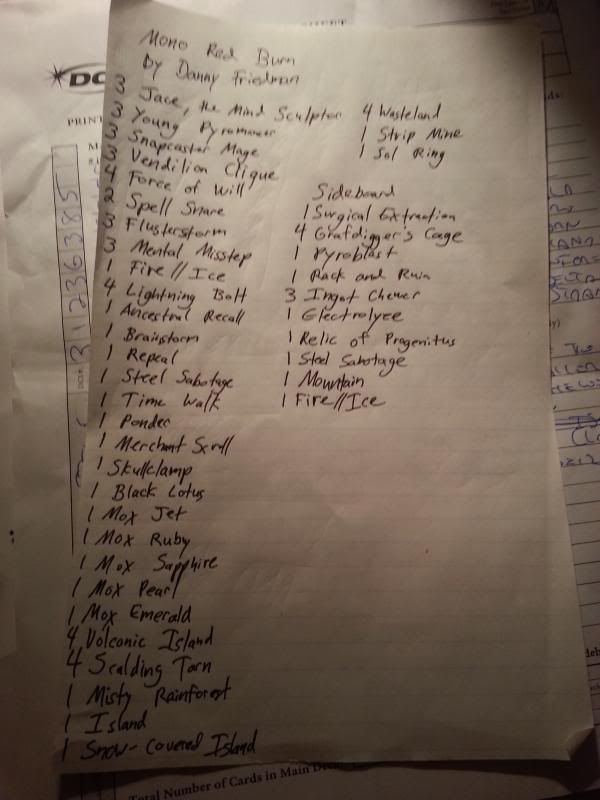 Mono Red Burn
by Danny Friedman
3 Jace, the Mind Sculptor
3 Young Pyromancer
3 Snapcaster Mage
3 Vendilion Clique
4 Force of Will
2 Spell Snare
3 Flusterstorm
3 Mental Misstep
1 Fire//Ice
4 Lightning Bolt
1 Ancestral Recall
1 Brainstorm
1 Repeal
1 Steel Sabotage
1 Time Walk
1 Ponder
1 Merchant Scroll
1 Skullclamp
1 Black Lotus
1 Mox Jet
1 Mox Ruby
1 Mox Sapphire
1 Mox Pearl
1 Mox Emerald
4 Volconic Island
4 Scalding Tarn
1 Misty Rainforest
1 Island
1 Snow-Covered Island
4 Wasteland
1 Strip Mine
1 Sol Ring
Sideboard
1 Surgical Extraction
4 Grafdigger's Cage
1 Pyroblast
1 Rack and Ruin
3 Ingot Chewer
1 Electrolyze
1 Relic of Progenitus
1 Steel Sabotage
1 Mountain
1 Fire//Ice
DC
PRIN
31236385
Total Number of Cards in Main De